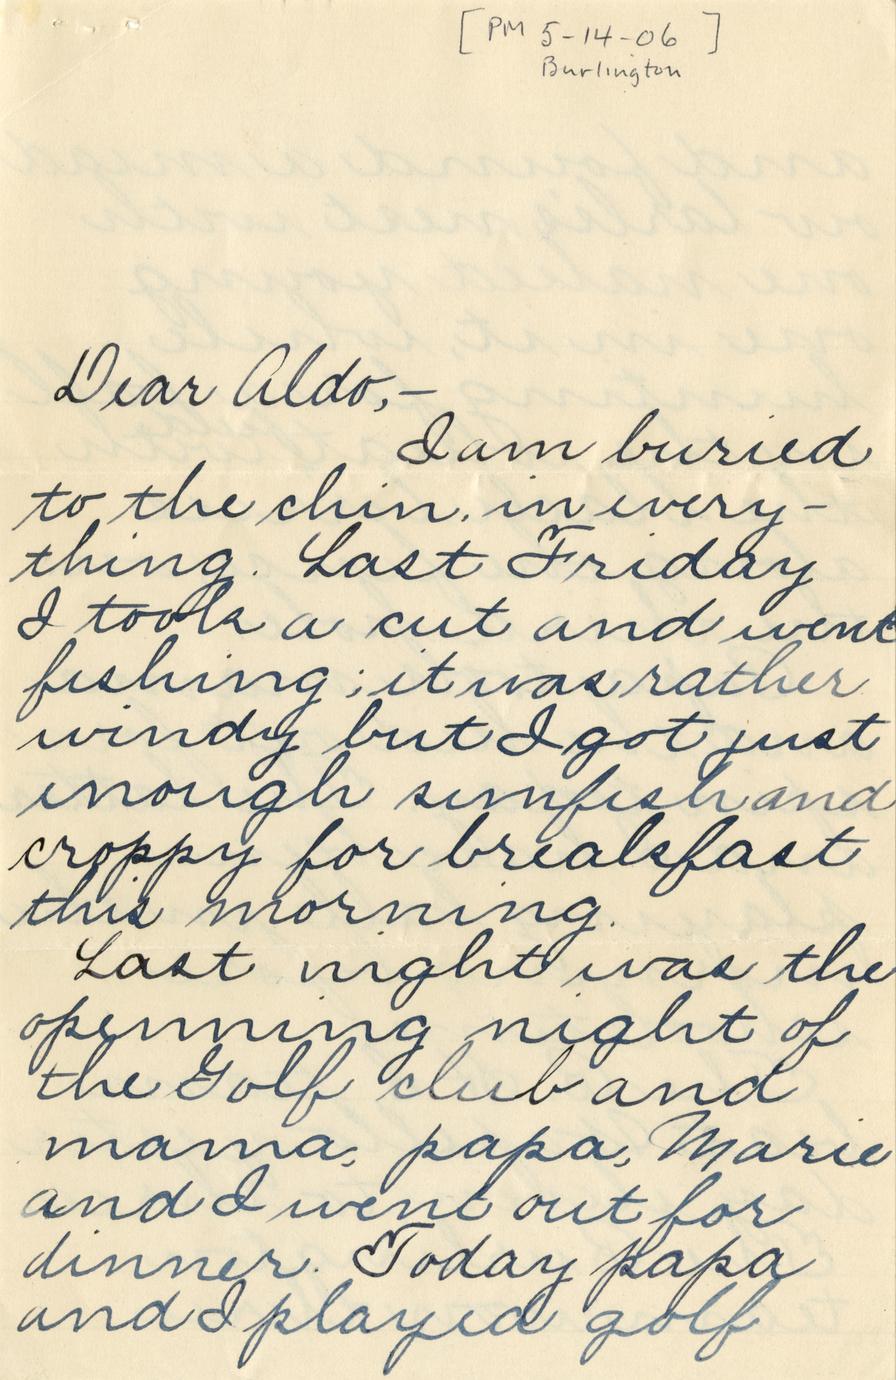 [PM 5-14-06]
Burlington
Dear Aldo,—
I am buried
to the chin in every-
thing. Last Friday
I took a cut and went
fishing; it was rather
windy but I got just
enough sunfish and
croppy for breakfast
this morning.
Last night was the
openning night of
the Golf club and
mama, papa, Marie
and I went out for
dinner. Today papa
and I played golf